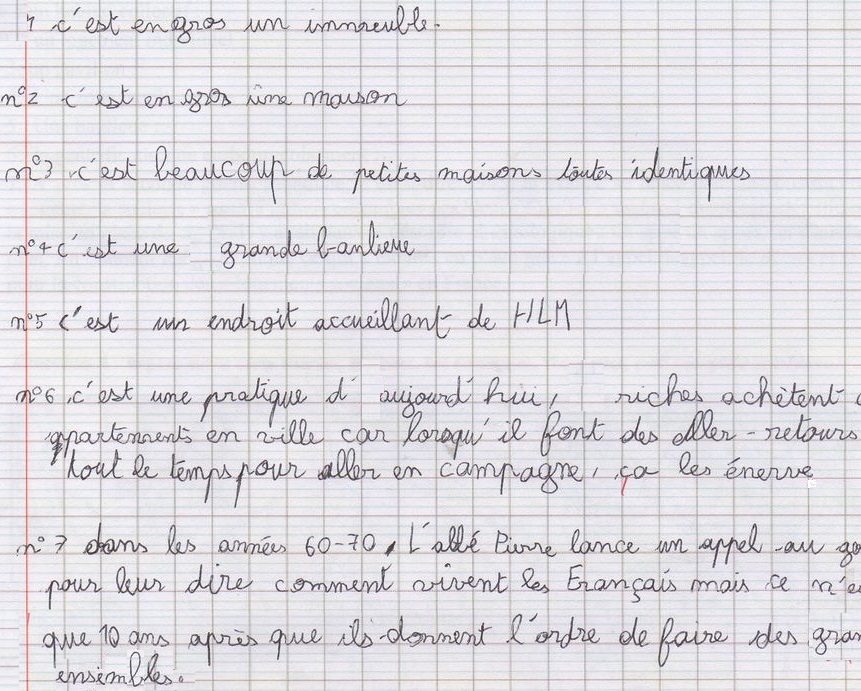 1 c'est en gros un immeuble.
n°2 c'est en gros une maison
n°3 c'est beaucoup de petites maisons toutes identiques
n°4 c'est une grande banlieue
n°5 c'est un endroit accueillant de HLM
n°6 c'est une pratique d'aujourd'hui, riches achètent
appartements en ville car lorsqu'il font des aller-retours
tout le temps pour aller en campagne, ça les énerve
n°7 dans les années 60-70, L'abbé Pierre lance un appel au go
pour leur dire comment vivent les Français mais ce n'e
que 10 ans après que ils donnent l'ordre de faire des gran
ensembles.